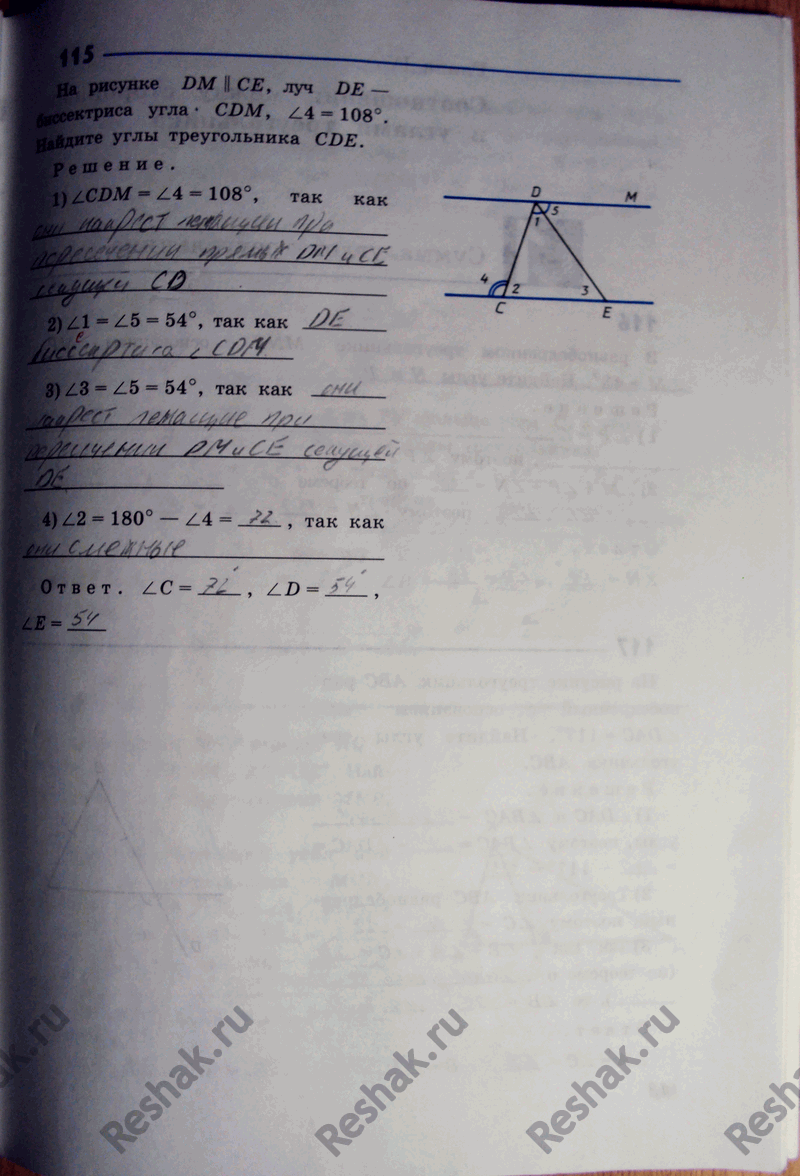 115
На рисунке DM || CE, луч DE —
биссектриса угла CDM, ∠4 = 108°.
Найдите углы треугольника CDE.
Решение.
1) ∠CDM = ∠4 = 108°, так как
они накрест лежащии при
пересечении прямых DM и CE
секущей CD
2) ∠1 = ∠5 = 54°, так как DE
∠ CDM
3) ∠3 = ∠5 = 54°, так как они
накрест лежащие при
пересечении DM и CE секущей
DE
4) ∠2 = 180° — ∠4 = 72, так как
они смежные
Ответ. ∠C = 72, ∠D = 54,
∠E = 54
D M
1 5
4 2 3
C E
Reshak.ru
Reshak.ru
Reshak.ru